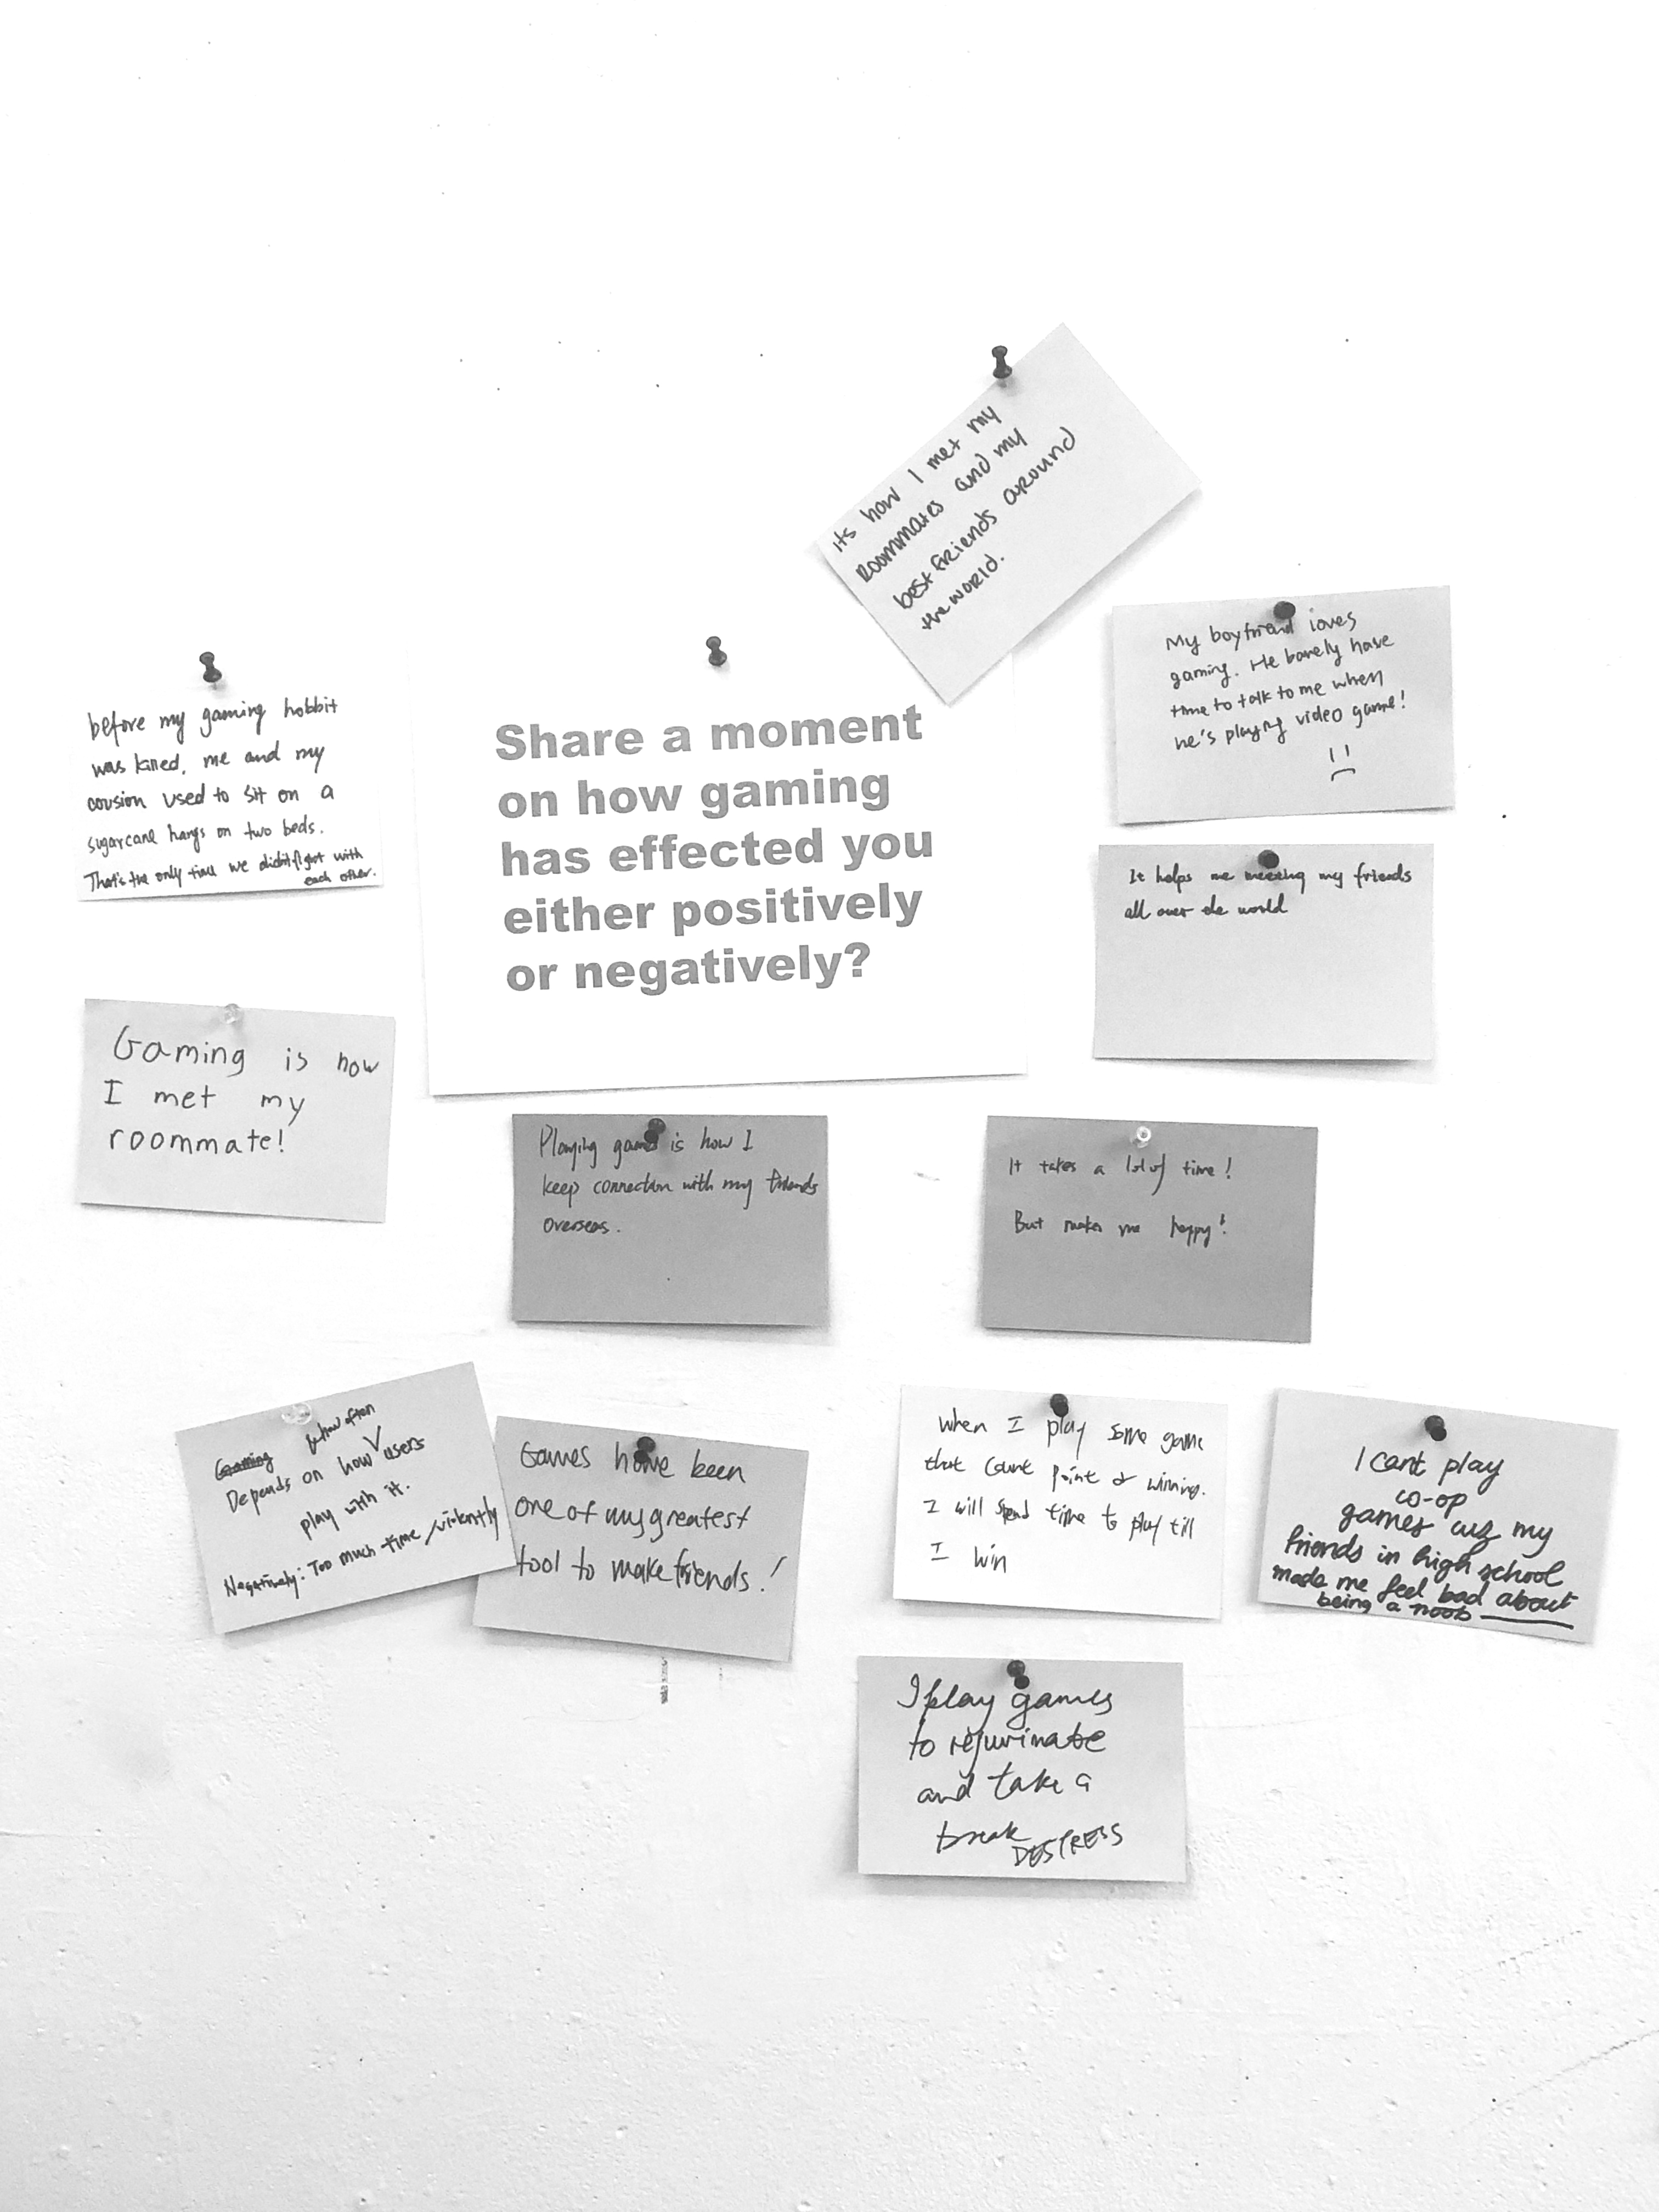 its how I met my
roommates and my
best friends around
the world.
My boyfriend loves
gaming. He barely have
time to talk to me when
he's playing video game!
before my gaming hobbit
was killed, me and my
cousion used to sit on a
sugarcane hangs on two beds.
That's the only time we didn't fight with
each other.
Share a moment
on how gaming
has effected you
either positively
or negatively?
It helps me meeting my friends
all over the world
Gaming is how
I met my
roommate!
Playing games is how I
keep connection with my friends
overseas.
It takes a lot of time!
But makes me happy!
Gaming & how often
Depends on how users
play with it.
Negatively: Too much time/violently
Games have been
one of my greatest
tool to make friends!
When I play some game
that count point & winning.
I will spend time to play till
I win
I cant play
co-op
games cuz my
friends in high school
made me feel bad about
being a noob
I play games
to rejuvinate
and take a
break
DESTRESS